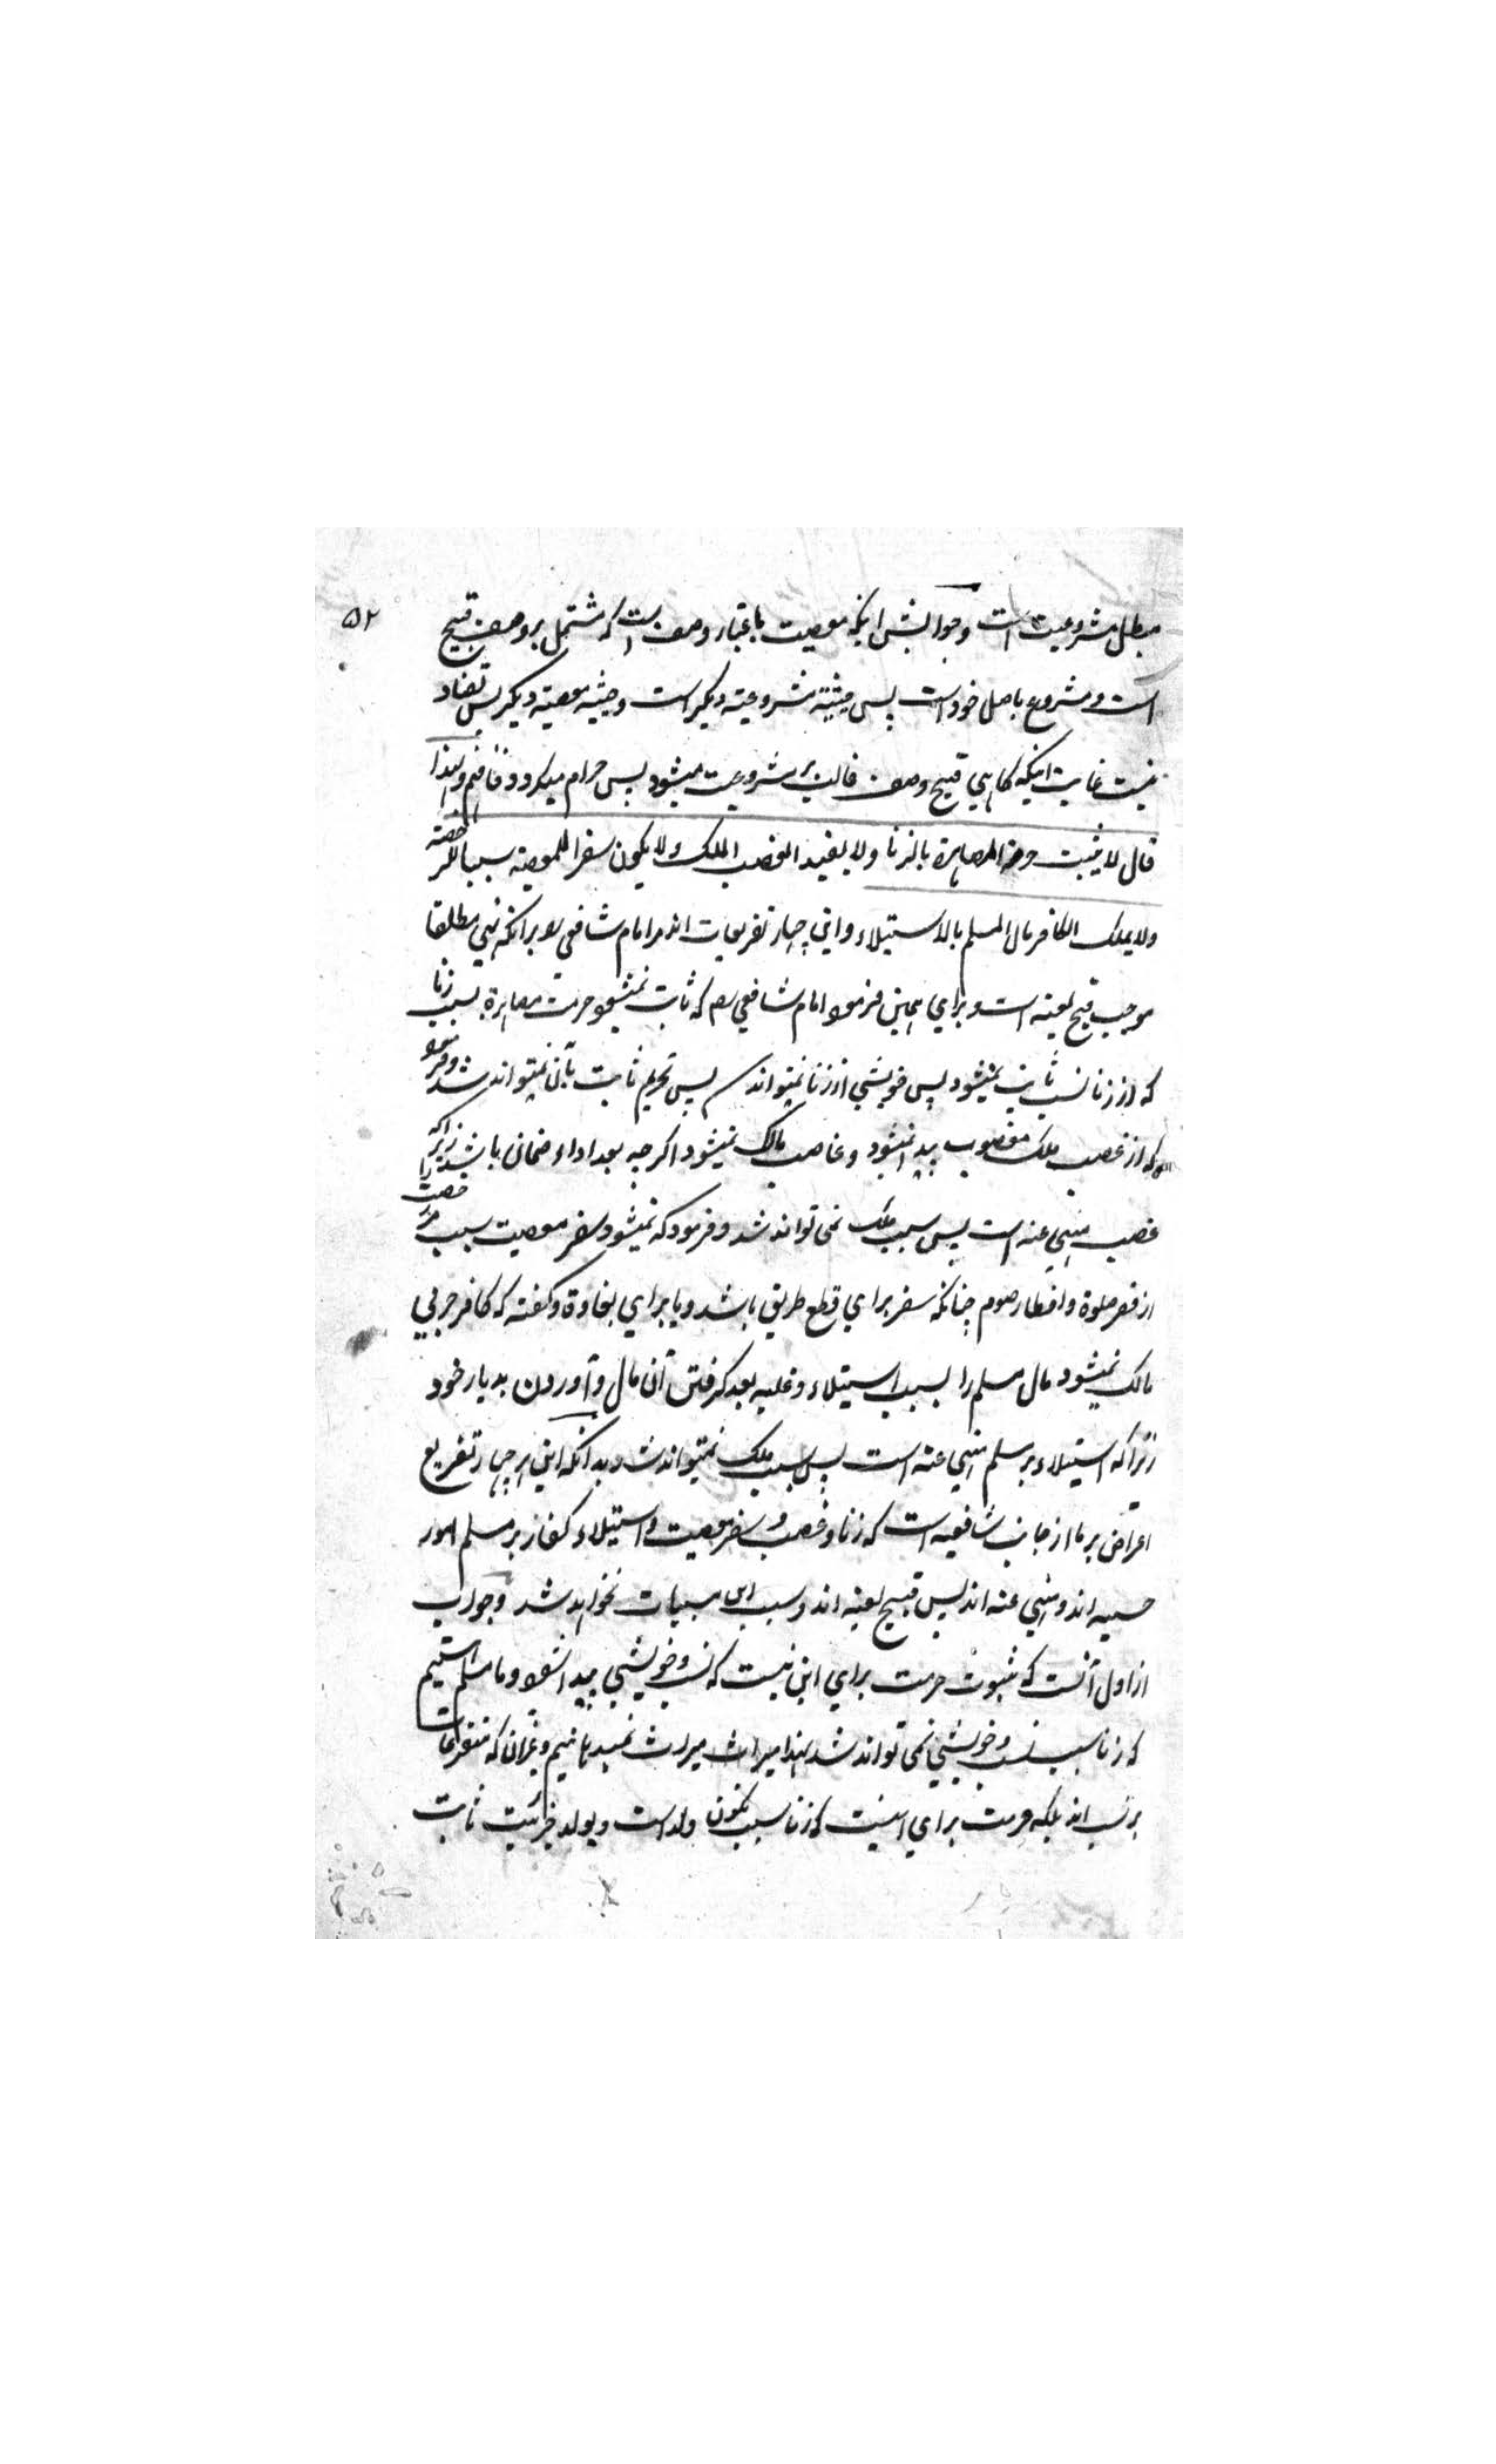 ۵۲
مبطل مشروعیت است وجوابش اینکه معصیت باعتبار وصف است که مشتمل بر وصف قبیح
است ومشروع باصل خود است پس حیثیته مشروعیته دیگر است وحیثیه معصیته دیگر پس تضاد
نیست غایت اینکه گاهی قبیح وصف غالب بر مشروعیت میشود پس حرام میگردد فافهم ولهذا
قال لا یثبت حرمة المصاهرة بالزنا ولا یفید الغصب الملک ولا یکون سفر المعصیة سببا للرخصة
ولا یملک الکافر مال المسلم بالاستیلاء واین چهار تفریعات اند مر امام شافعی را بر آنکه نهی مطلقا
موجب قبح لعینه است وبرای همین فرمود امام شافعی رح که ثابت نمیشود حرمت مصاهرة بسبب زنا
که از زنا نسب ثابت نمیشود پس خویشی از زنا نمیتواند پس تحریم ثابت بآن نمیتواند شد وفرمود
که از غصب ملک مغصوب پیدا نمیشود وغاصب مالک نمیشود اگرچه بعد اداء ضمان باشد زیراکه
غصب منهی عنه است پس سبب ملک نمی تواند شد وفرمود که نمیشود سفر معصیت سبب مر رخصت را
از قصر صلوة وافطار صوم چنانکه سفر برای قطع طریق باشد ویا برای بغاوة وگفته که کافر حربی
مالک نمیشود مال مسلم را بسبب استیلاء وغلبه بعد گرفتن آن مال وآوردن بدیار خود
زیراکه استیلاء بر مسلم منهی عنه است پس سبب ملک نمیتواند شد وبدانکه این هر چهار تفریع
اعراض بر ما از جانب شافعیه است که زنا وغصب وسفر معصیت واستیلاء کفار بر مسلم امور
حسیه اند ومنهی عنه اند پس قبیح لعینه اند وسبب این مسببات نخواهد شد وجواب
از اول آنست که ثبوت حرمت برای این نیست که نسب وخویشی پیدا شود وما مسلم داشتیم
که زنا سبب نسب وخویشی نمی تواند شد لهذا میراث میراث نمیدهانیم وغیر آن که متفرعات
بر نسب اند بلکه حرمت برای اینست که زنا سبب تکون ولد است وبولد جزئیت ثابت